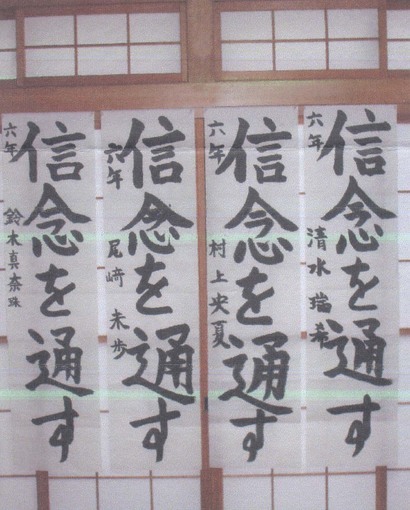 信念を通す
六年 清水 瑞希
信念を通す
六年 村上央夏
信念を通す
六年 尾崎 未歩
信念を通す
六年 鈴木真奈珠